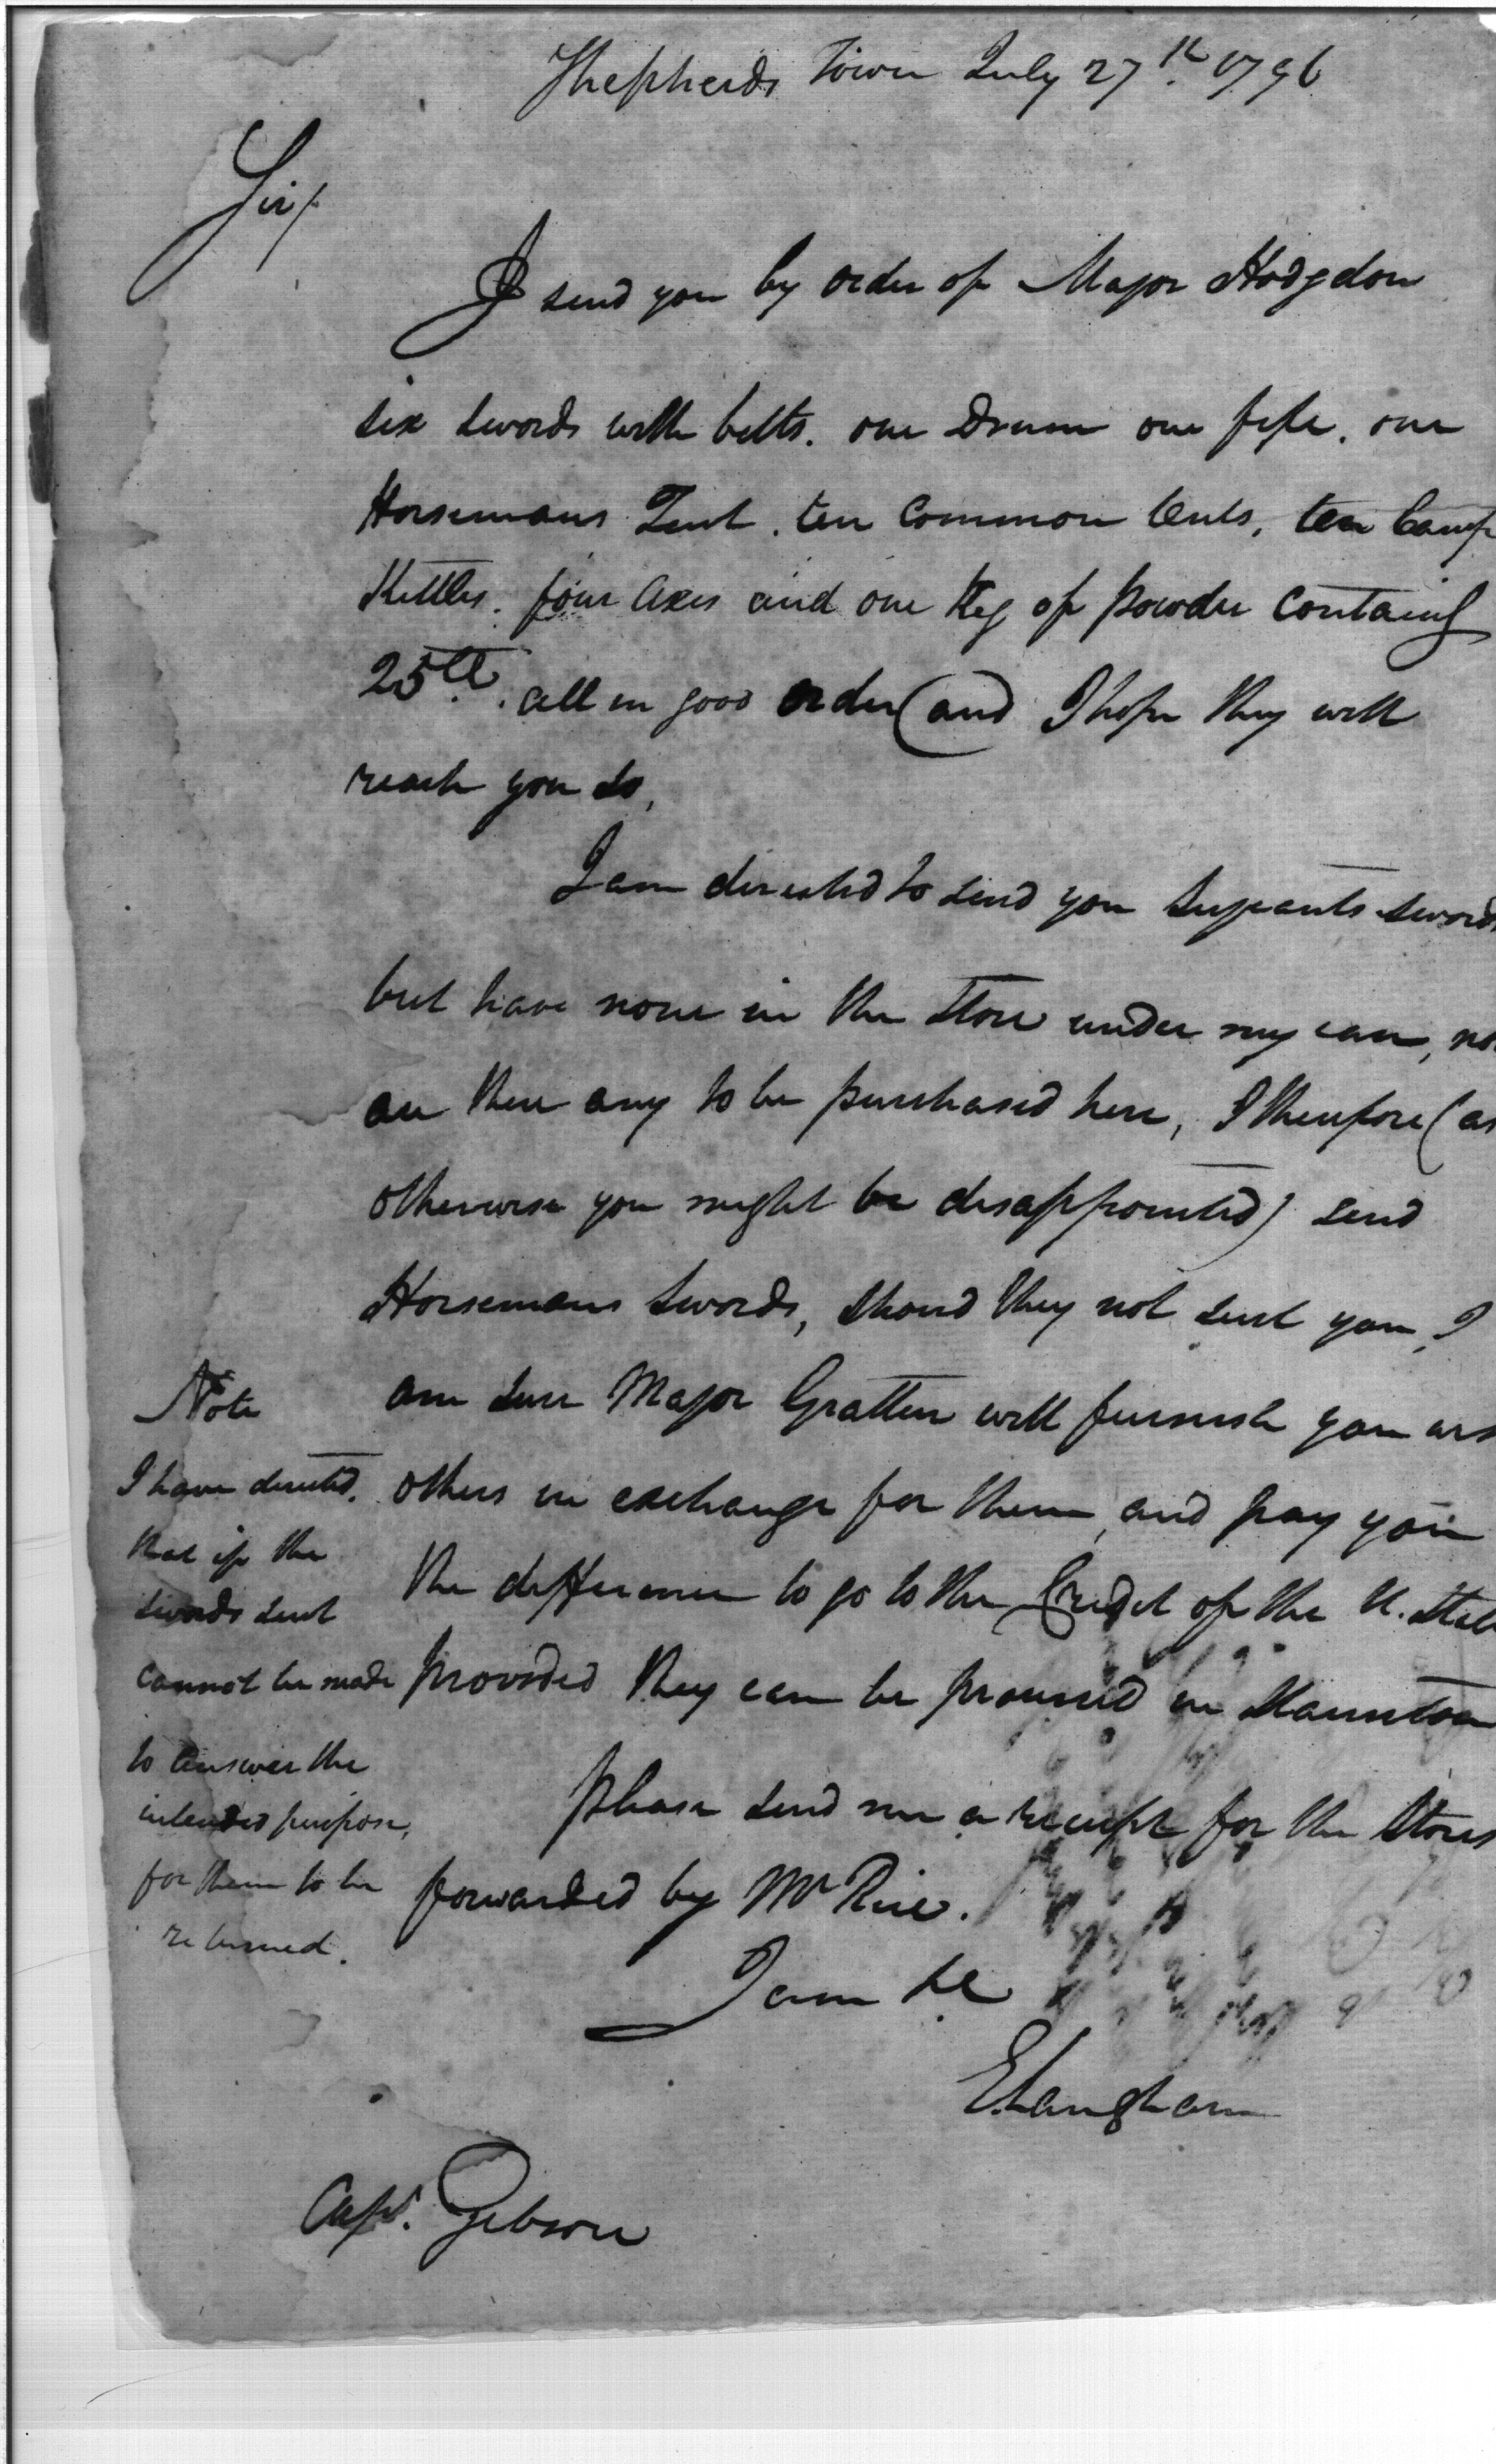 Shepherds Town July 27th. 1796
Sir/
I send you by order of Major Hodgdon
six swords with belts. one Drum one fife. one
Horsemans Tent. ten Common tents, ten Camp
Kettles. four axes and one Keg of powder containg
25 lb. all in good order (and I hope they will
reach you so,
I am directed to send you Serjeants swords
but have none in the Store under my care, no
are there any to be purchased here, I therefore (as
otherwise you might be disappointed) send
Horsemans swords, shoud they not suit you, I
am sure Major Gratten will furnish you
others in exchange for them, and pay you
the difference to go to the Credit of the U. State
provided they can be procured in Staunton
please send me a receipt for the Stores
forwarded by Mr Rice.
I am &c
E Langham
Capt. Gibson
Note
I have directed.
that if the
swords sent
cannot be made
to answer the
intended purpose,
for them to be
returned.